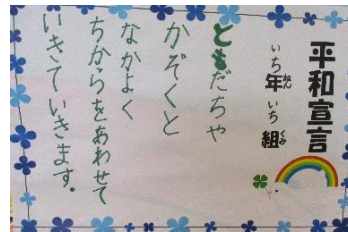 平和宣言
いち年いち組
ともだちや
かぞくと
なかよく
ちからをあわせて
いきていきます。